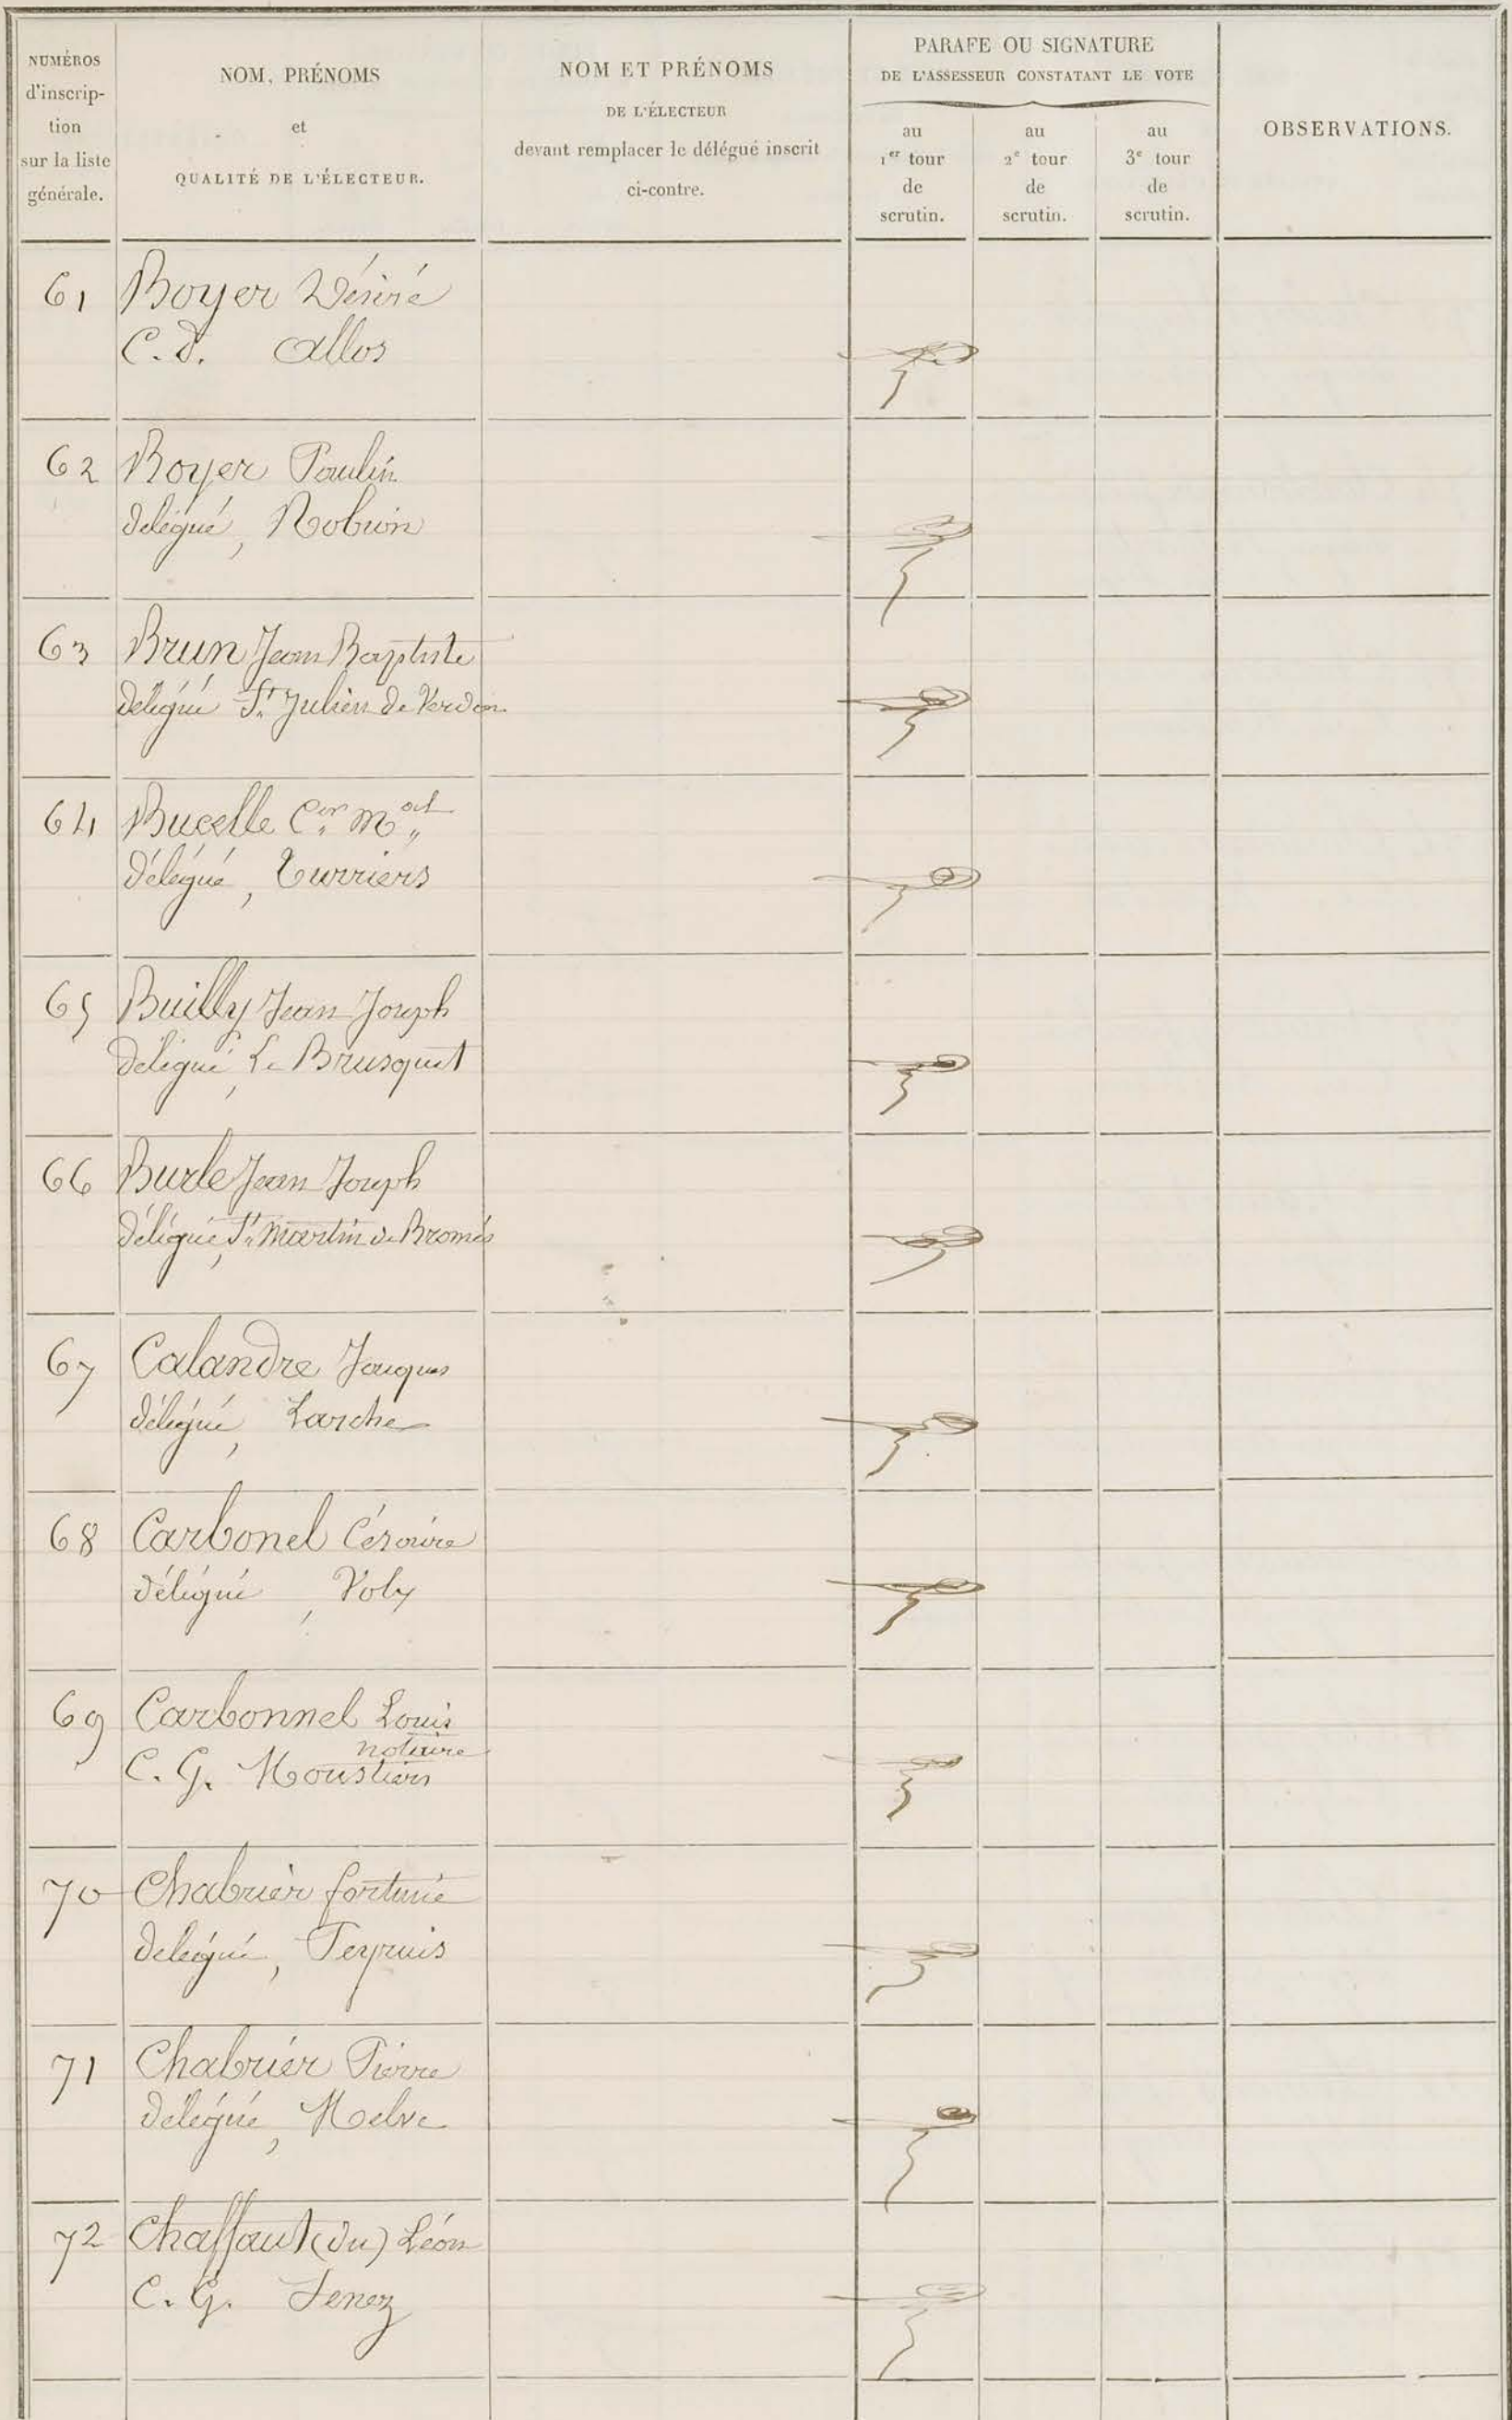 NUMÉROS
d'inscrip-
tion
sur la liste
générale.
NOM, PRÉNOMS
et
QUALITÉ DE L'ÉLECTEUR.
NOM ET PRÉNOMS
DE L'ÉLECTEUR
devant remplacer le délégué inscrit
ci-contre.
PARAFE OU SIGNATURE
DE L'ASSESSEUR CONSTATANT LE VOTE
au
1er tour
de
scrutin.
au
2e tour
de
scrutin.
au
3e tour
de
scrutin.
OBSERVATIONS.
61 Boyer Désiré
C. d. Allos
62 Boyer Paulin
délégué, Robion
63 Brun Jean Baptiste
délégué St Julien de Verdon
64 Bucelle
délégué, Turriers
65 Builly Jean Joseph
délégué, Le Brusquet
66 Burle Jean Joseph
délégué, St Martin de Bromes
67 Calandre Jacques
délégué, Larche
68 Carbonel Césaire
délégué, Volx
69 Carbonnel Louis
notaire
C. G. Moustiers
70 Chabrier fortuné
délégué, Peyruis
71 Chabrier Pierre
délégué, Melve
72 Chaffaut (du) Léon
C. G. Senez